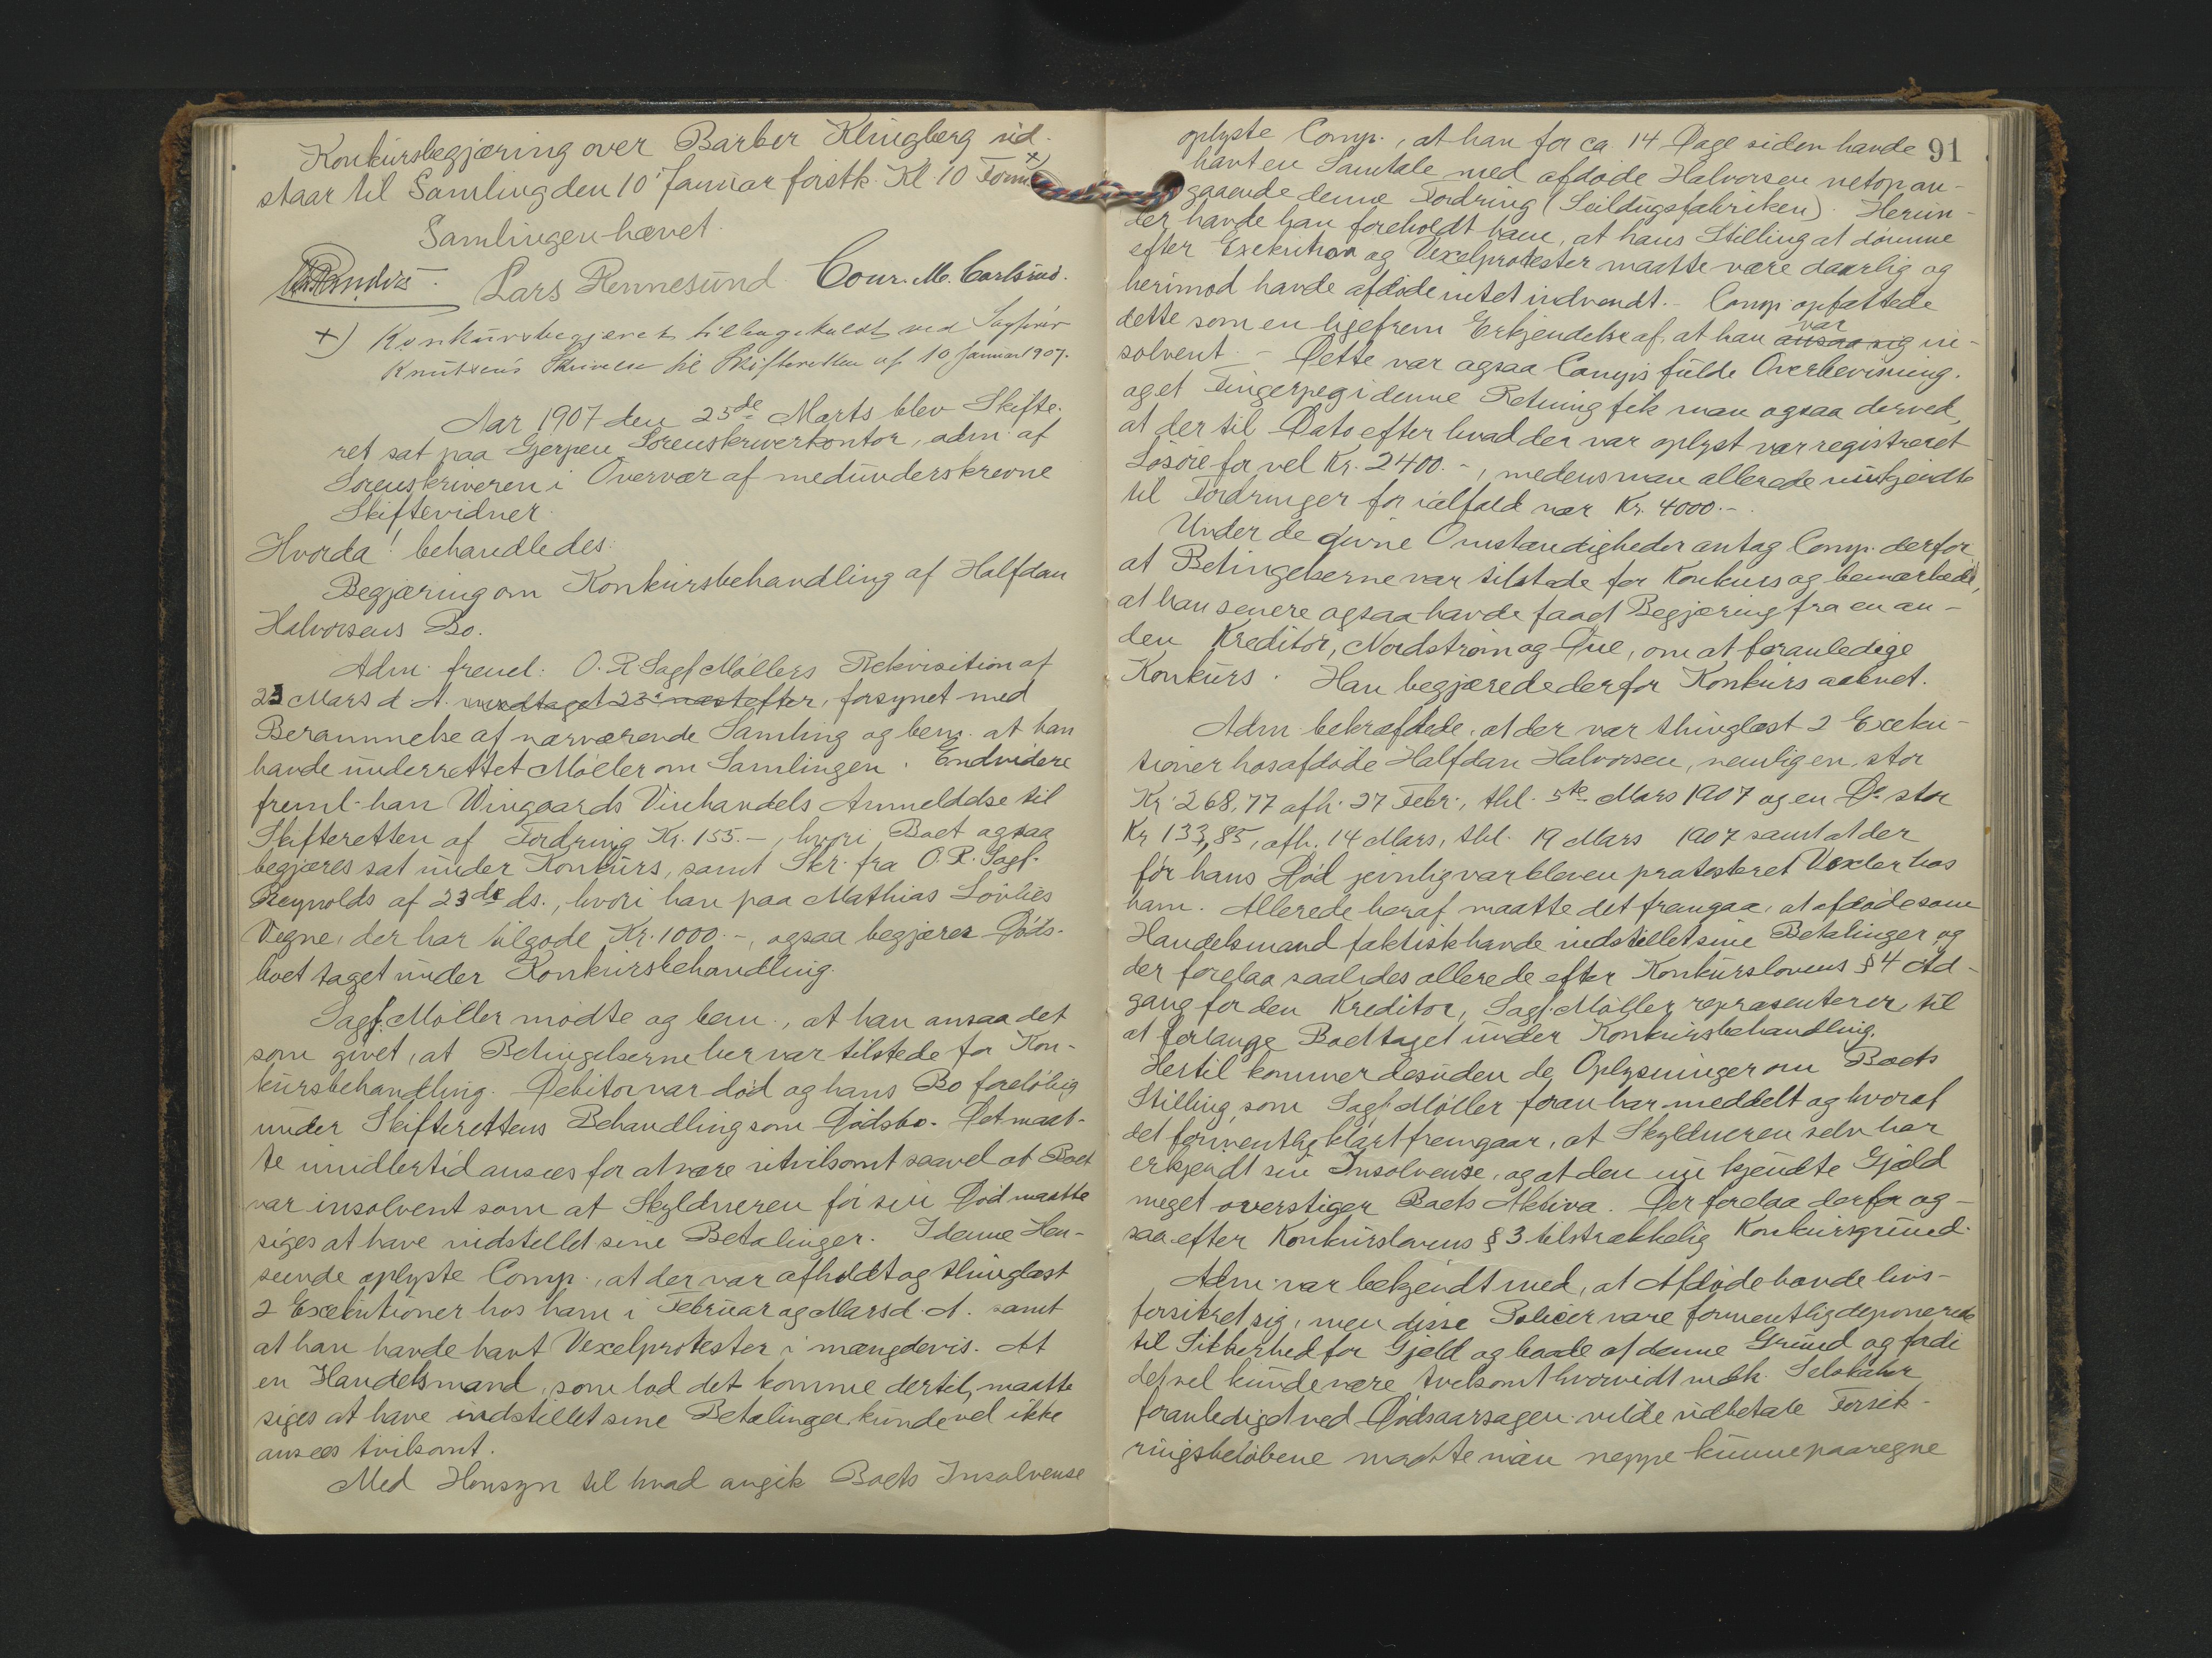 Konkursbegjæring over Barber Klingberg ud
staar til Samling den 10' Januar förstk. Kl. 10 Form. +)
Samlingen hævet.
Lars Rennesund. Cour. M. Carlsrud.
+) Konkursbegjæret tilbagekaldt ved Sagförer
Knutsens Skrivelse til Skifteretten af 10 Januar 1907.
Aar 1907 den 25de Marts blev Skifte-
ret sat paa Gjerpen Sorenskriverkontor, adm. af
Sorenskriveren i Overvær af medunderskrevne
Skiftevidner.
Hvorda! behandledes:
Begjæring om Konkursbehandling af Halfdan
Halvorsens Bo.
Adm. freml. O.R. Sagf. Möllers Rekvisition af
23 Mars d. A. modtaget 23' næstefter, forsynet med
Berammelse af nærværende Samling og bem. at han
havde underrettet Möller om Samlingen. Endvidere
freml. han Wingaards Vinhandels Anmeldelse til
Skifteretten af Fordring Kr. 155.-, hvori Boet ogsaa
begjæres sat under Konkurs, samt Skr. fra O.R. Sagf.
Reynolds af 23de ds., hvori han paa Mathias Lövlies
Vegne, der har tilgode Kr. 1000.-, ogsaa begjærer Döds-
boet taget under Konkursbehandling.
Sagf. Möller mödte og bem., at han ansaa det
som givet, at Betingelserne her var tilstede for Kon-
kursbehandling. Debitor var död og hans Bo forelöbig
under Skifterettens Behandling som Dödsbo. Det maat-
te imidlertid ansees for at være utvilsomt saavel at Boet
var insolvent som at Skyldneren för sin Död maatte
siges at have indstillet sine Betalinger. I denne Hen-
seende oplyste Comp., at der var afholdt og thinglæst
2 Exekutioner hos ham i Februar og Mars d. A. samt
at han havde havt Vexelprotester i mængdevis. At
en Handelsmand, som lod det komme dertil, maatte
siges at have indstillet sine Betalinger kunde vel ikke
ansees tvilsomt.
Med Hensyn til hvad angik Boets Insolvense
91
oplyste Comp., at han for ca. 14 Dage siden havde
havt en Samtale med afdöde Halvorsen netop an-
gaaende denne Fordring (Seildugsfabriken). Herun-
der havde han foreholdt ham, at hans Stilling at dömme
efter Exekution og Vexelprotester maatte være daarlig og
herimod havde afdöde intet indvendt. - Comp. opfattede
dette som en ligefrem Erkjendelse af, at han ansaa sig var in-
solvent. - Dette var ogsaa Comp's fulde Overbevisning.
og et Fingerpeg i denne Retning fik man ogsaa derved,
at der til Dato efter hvad der var oplyst var registreret
Lösöre for vel Kr. 2400.-, medens man allerede nu kjendte
til Fordringer for ialfald nær Kr. 4000.-
Under de givne Omstændigheder antog Comp. derfor,
at Betingelserne var tilstede for Konkurs og bemærkede,
at han senere ogsaa havde faaet Begjæring fra en an-
den Kreditor, Nordström og Due, om at foranledige
Konkurs. Han begjærede derfor Konkurs aabnet.
Adm. bekræftede, at der var thinglæst 2 Exeku-
tioner hos afdöde Halfdan Halvorsen, nemlig en, stor
Kr. 268,77 afh. 27 Febr., thl. 5te Mars 1907 og en Do stor
Kr. 133,85, afh. 14 Mars, thl. 19 Mars 1907 samt at der
för hans Död jevnlig var bleven protesteret Vexler hos
ham. Allerede heraf maatte det fremgaa, at afdöde som
Handelsmand faktisk havde indstillet sine Betalinger og
der forelaa saaledes allerede efter Konkurslovens § 4 Ad-
gang for den Kreditor, Sagf. Möller repræsenterer, til
at forlange Boet taget under Konkursbehandling.
Hertil kommer desuden de Oplysninger om Boets
Stilling, som Sagf. Möller foran har meddelt og hvoraf
det formentlig klart fremgaar, at Skyldneren selv har
erkjendt sin Insolvense, og at den nu kjendte Gjæld
meget overstiger Boets Aktiva. Der forelaa derfor og-
saa efter Konkurslovens § 3 tilstrækkelig Konkursgrund.
Adm. var bekjendt med, at Afdöde havde livs-
forsikret sig, men disse Policer vare formentlig deponerede
til Sikkerhed for Gjæld og baade af denne Grund og fordi
det vel kunde være tvilsomt hvorvidt vedk. Selskaber
foranlediget ved Dödsaarsagen vilde udbetale Forsik-
ringsbelöbene maatte man neppe kunne paaregne